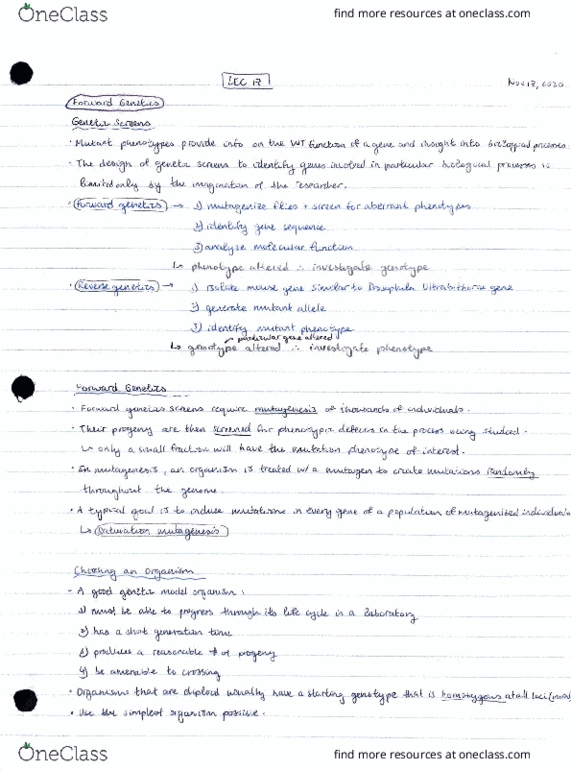 OneClass
find more resources at oneclass.com
LEC 17
Nov 17, 2020
Forward Genetics
Genetic Screens
• Mutant phenotypes provide info on the WT function of a gene and insight into biological processes
• The design of genetic screens to identify genes involved in particular biological processes is
limited only by the imagination of the researcher.
• Forward genetics → 1) mutagenize flies + screen for aberrant phenotypes
2) identify gene sequence
3) analyze molecular function
↳ phenotype altered ∴ investigate genotype
• Reverse genetics → 1) isolate mouse gene similar to Drosophila Ultrabithorax gene
2) generate mutant allele
3) identify mutant phenotype
particular gene altered
↳ genotype altered ∴ investigate phenotype
Forward Genetics
• Forward genetics screens require mutagenesis of thousands of individuals.
• Their progeny are then screened for phenotypic defects in the process being studied.
↳ only a small fraction will have the mutation phenotype of interest.
• In mutagenesis, an organism is treated w/ a mutagen to create mutations randomly
throughout the genome.
• A typical goal is to induce mutations in every gene of a population of mutagenized individuals
↳ Saturation mutagenesis
Choosing an Organism
- A good genetic model organism:
1) must be able to progress through its life cycle in a laboratory
2) has a short generation time
3) produces a reasonable # of progeny
4) be amenable to crossing
• Organisms that are diploid usually have a starting genotype that is homozygous at all loci
• Use the simplest organism possible.
OneClass
find more resources at oneclass.com